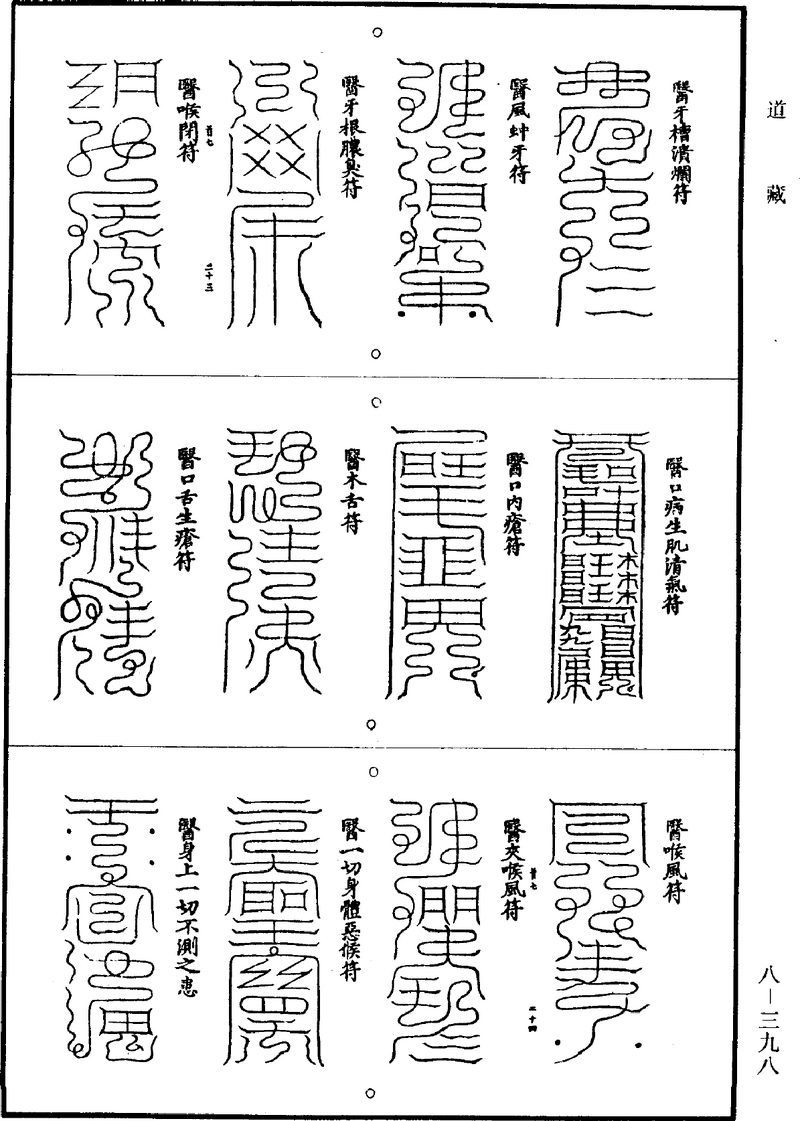 道藏
醫牙槽潰爛符
醫風蚛牙符
醫牙根膿臭符
醫喉閉符
首七
二十三
醫口病生肌清氣符
醫口內瘡符
醫木舌符
醫口舌生瘡符
醫喉風符
醫夾喉風符
首七
二十四
醫一切身體惡候符
醫身上一切不測之患
八—三九八